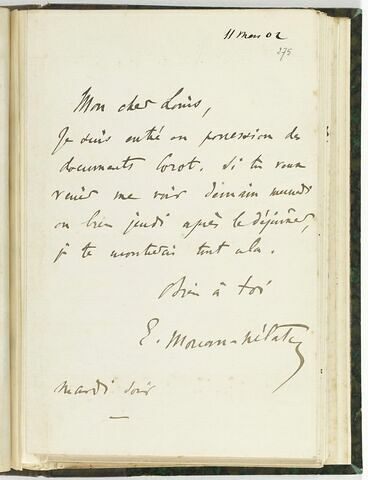 11 mars 02
275
Mon cher Louis,
Je suis entré en possession des
documents Corot. Si tu veux
venir me voir demain mercredi
ou bien jeudi après le déjeûner,
je te montrerai tout cela.
Bien à toi
E. Moreau-Nélaton
mardi soir